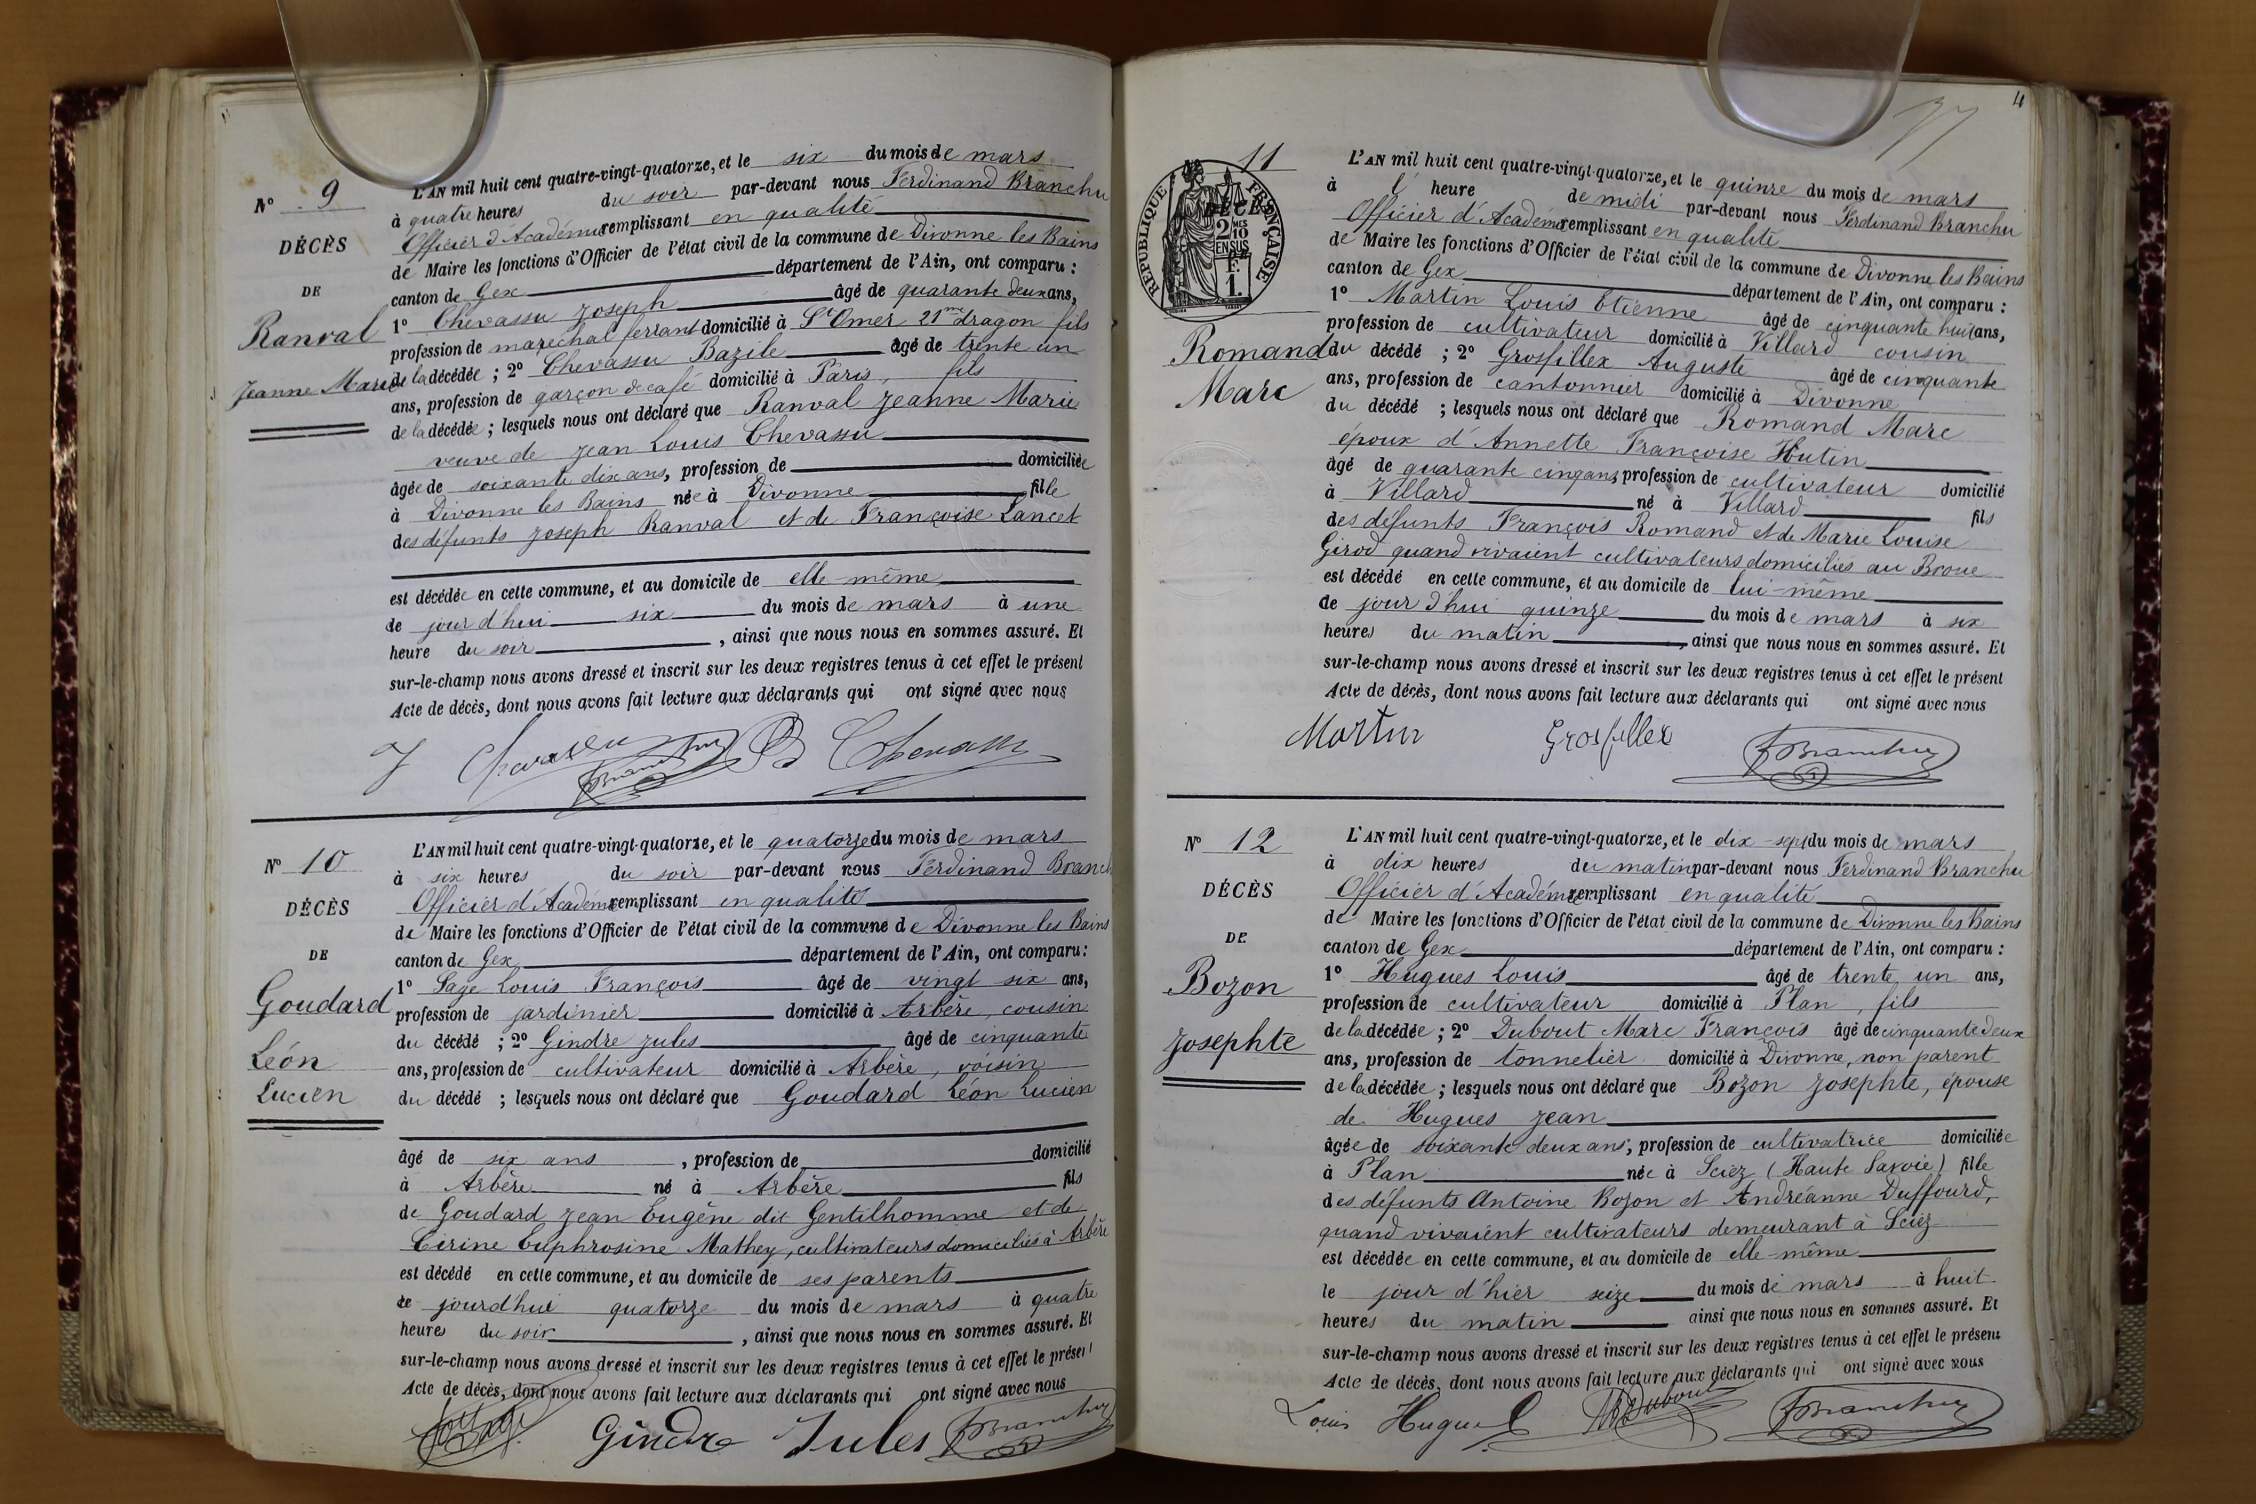 Nº 9
DÉCÈS
DE
Ranval
Jeanne Marie
L'AN mil huit cent quatre-vingt-quatorze, et le six du mois de mars
à quatre heures du soir par-devant nous Ferdinand Branchu
Officier d'Académie remplissant en qualité
de Maire les fonctions d'Officier de l'état civil de la commune de Divonne les Bains
canton de Gex département de l'Ain, ont comparu :
1º Chevassu Joseph âgé de quarante deux ans,
profession de maréchal ferrant domicilié à St Omer 21me dragon fils
de la décédée ; 2º Chevassu Bazile âgé de trente un
ans, profession de garçon de café domicilié à Paris, fils
de la décédée ; lesquels nous ont déclaré que Ranval Jeanne Marie
veuve de Jean Louis Chevassu
âgée de soixante dix ans, profession de domiciliée
à Divonne les Bains née à Divonne fille
des défunts Joseph Ranval et de Françoise Lancet
est décédée en cette commune, et au domicile de elle-même
ce jour d'hui six du mois de mars à une
heure du soir , ainsi que nous nous en sommes assuré. Et
sur-le-champ nous avons dressé et inscrit sur les deux registres tenus à cet effet le présent
Acte de décès, dont nous avons fait lecture aux déclarants qui ont signé avec nous
J Chevassu FBranchu B Chevassu
Nº 10
DÉCÈS
DE
Goudard
Léon
Lucien
L'AN mil huit cent quatre-vingt-quatorze, et le quatorze du mois de mars
à six heures du soir par-devant nous Ferdinand Branch
Officier d'Académie remplissant en qualité
de Maire les fonctions d'Officier de l'état civil de la commune de Divonne les Bains
canton de Gex département de l'Ain, ont comparu :
1º Sage Louis François âgé de vingt six ans,
profession de jardinier domicilié à Arbère, cousin
du décédé ; 2º Gindre Jules âgé de cinquante
ans, profession de cultivateur domicilié à Arbère, voisin
du décédé ; lesquels nous ont déclaré que Goudard Léon Lucien
âgé de six ans , profession de domicilié
à Arbère né à Arbère fils
de Goudard Jean Eugène dit Gentilhomme et de
Cirine Euphrosine Mathey, cultivateurs domiciliés à Arbère
est décédé en cette commune, et au domicile de ses parents
ce jourd'hui quatorze du mois de mars à quatre
heures du soir , ainsi que nous nous en sommes assuré. Et
sur-le-champ nous avons dressé et inscrit sur les deux registres tenus à cet effet le présent
Acte de décès, dont nous avons fait lecture aux déclarants qui ont signé avec nous
Gindre Jules FBranchu
11
RÉPUBLIQUE FRANÇAISE
DÉCÈS
2/10 MES
EN SUS
F.
1.
Romand
Marc
L'AN mil huit cent quatre-vingt-quatorze, et le quinze du mois de mars
à l' heure de midi par-devant nous Ferdinand Branchu
Officier d'Académie remplissant en qualité
de Maire les fonctions d'Officier de l'état civil de la commune de Divonne les Bains
canton de Gex département de l'Ain, ont comparu :
1º Martin Louis Etienne âgé de cinquante huit ans,
profession de cultivateur domicilié à Villard cousin
du décédé ; 2º Grosfillex Auguste âgé de cinquante
ans, profession de cantonnier domicilié à Divonne
du décédé ; lesquels nous ont déclaré que Romand Marc
époux d'Annette Françoise Hutin
âgé de quarante cinq ans, profession de cultivateur domicilié
à Villard né à Villard fils
des défunts François Romand et de Marie Louise
Girod quand vivaient cultivateurs domiciliés au Broue
est décédé en cette commune, et au domicile de lui-même
ce jour d'hui quinze du mois de mars à six
heures du matin , ainsi que nous nous en sommes assuré. Et
sur-le-champ nous avons dressé et inscrit sur les deux registres tenus à cet effet le présent
Acte de décès, dont nous avons fait lecture aux déclarants qui ont signé avec nous
Martin Grosfillex FBranchu
Nº 12
DÉCÈS
DE
Bozon
Josephte
L'AN mil huit cent quatre-vingt-quatorze, et le dix-sept du mois de mars
à dix heures du matin par-devant nous Ferdinand Branchu
Officier d'Académie remplissant en qualité
de Maire les fonctions d'Officier de l'état civil de la commune de Divonne les Bains
canton de Gex département de l'Ain, ont comparu :
1º Hugues Louis âgé de trente un ans,
profession de cultivateur domicilié à Plan, fils
de la décédée ; 2º Dubout Marc François âgé de cinquante deux
ans, profession de tonnelier domicilié à Divonne, non parent
de la décédée ; lesquels nous ont déclaré que Bozon Josephte, épouse
de Hugues Jean
âgée de soixante deux ans, profession de cultivatrice domiciliée
à Plan née à Sciez (Haute Savoie) fille
des défunts Antoine Bozon et Andréanne Duffourd,
quand vivaient cultivateurs demeurant à Sciez
est décédée en cette commune, et au domicile de elle-même
le jour d'hier seize du mois de mars à huit
heures du matin ainsi que nous nous en sommes assuré. Et
sur-le-champ nous avons dressé et inscrit sur les deux registres tenus à cet effet le présent
Acte de décès, dont nous avons fait lecture aux déclarants qui ont signé avec nous
Louis Hugues Dubout FBranchu